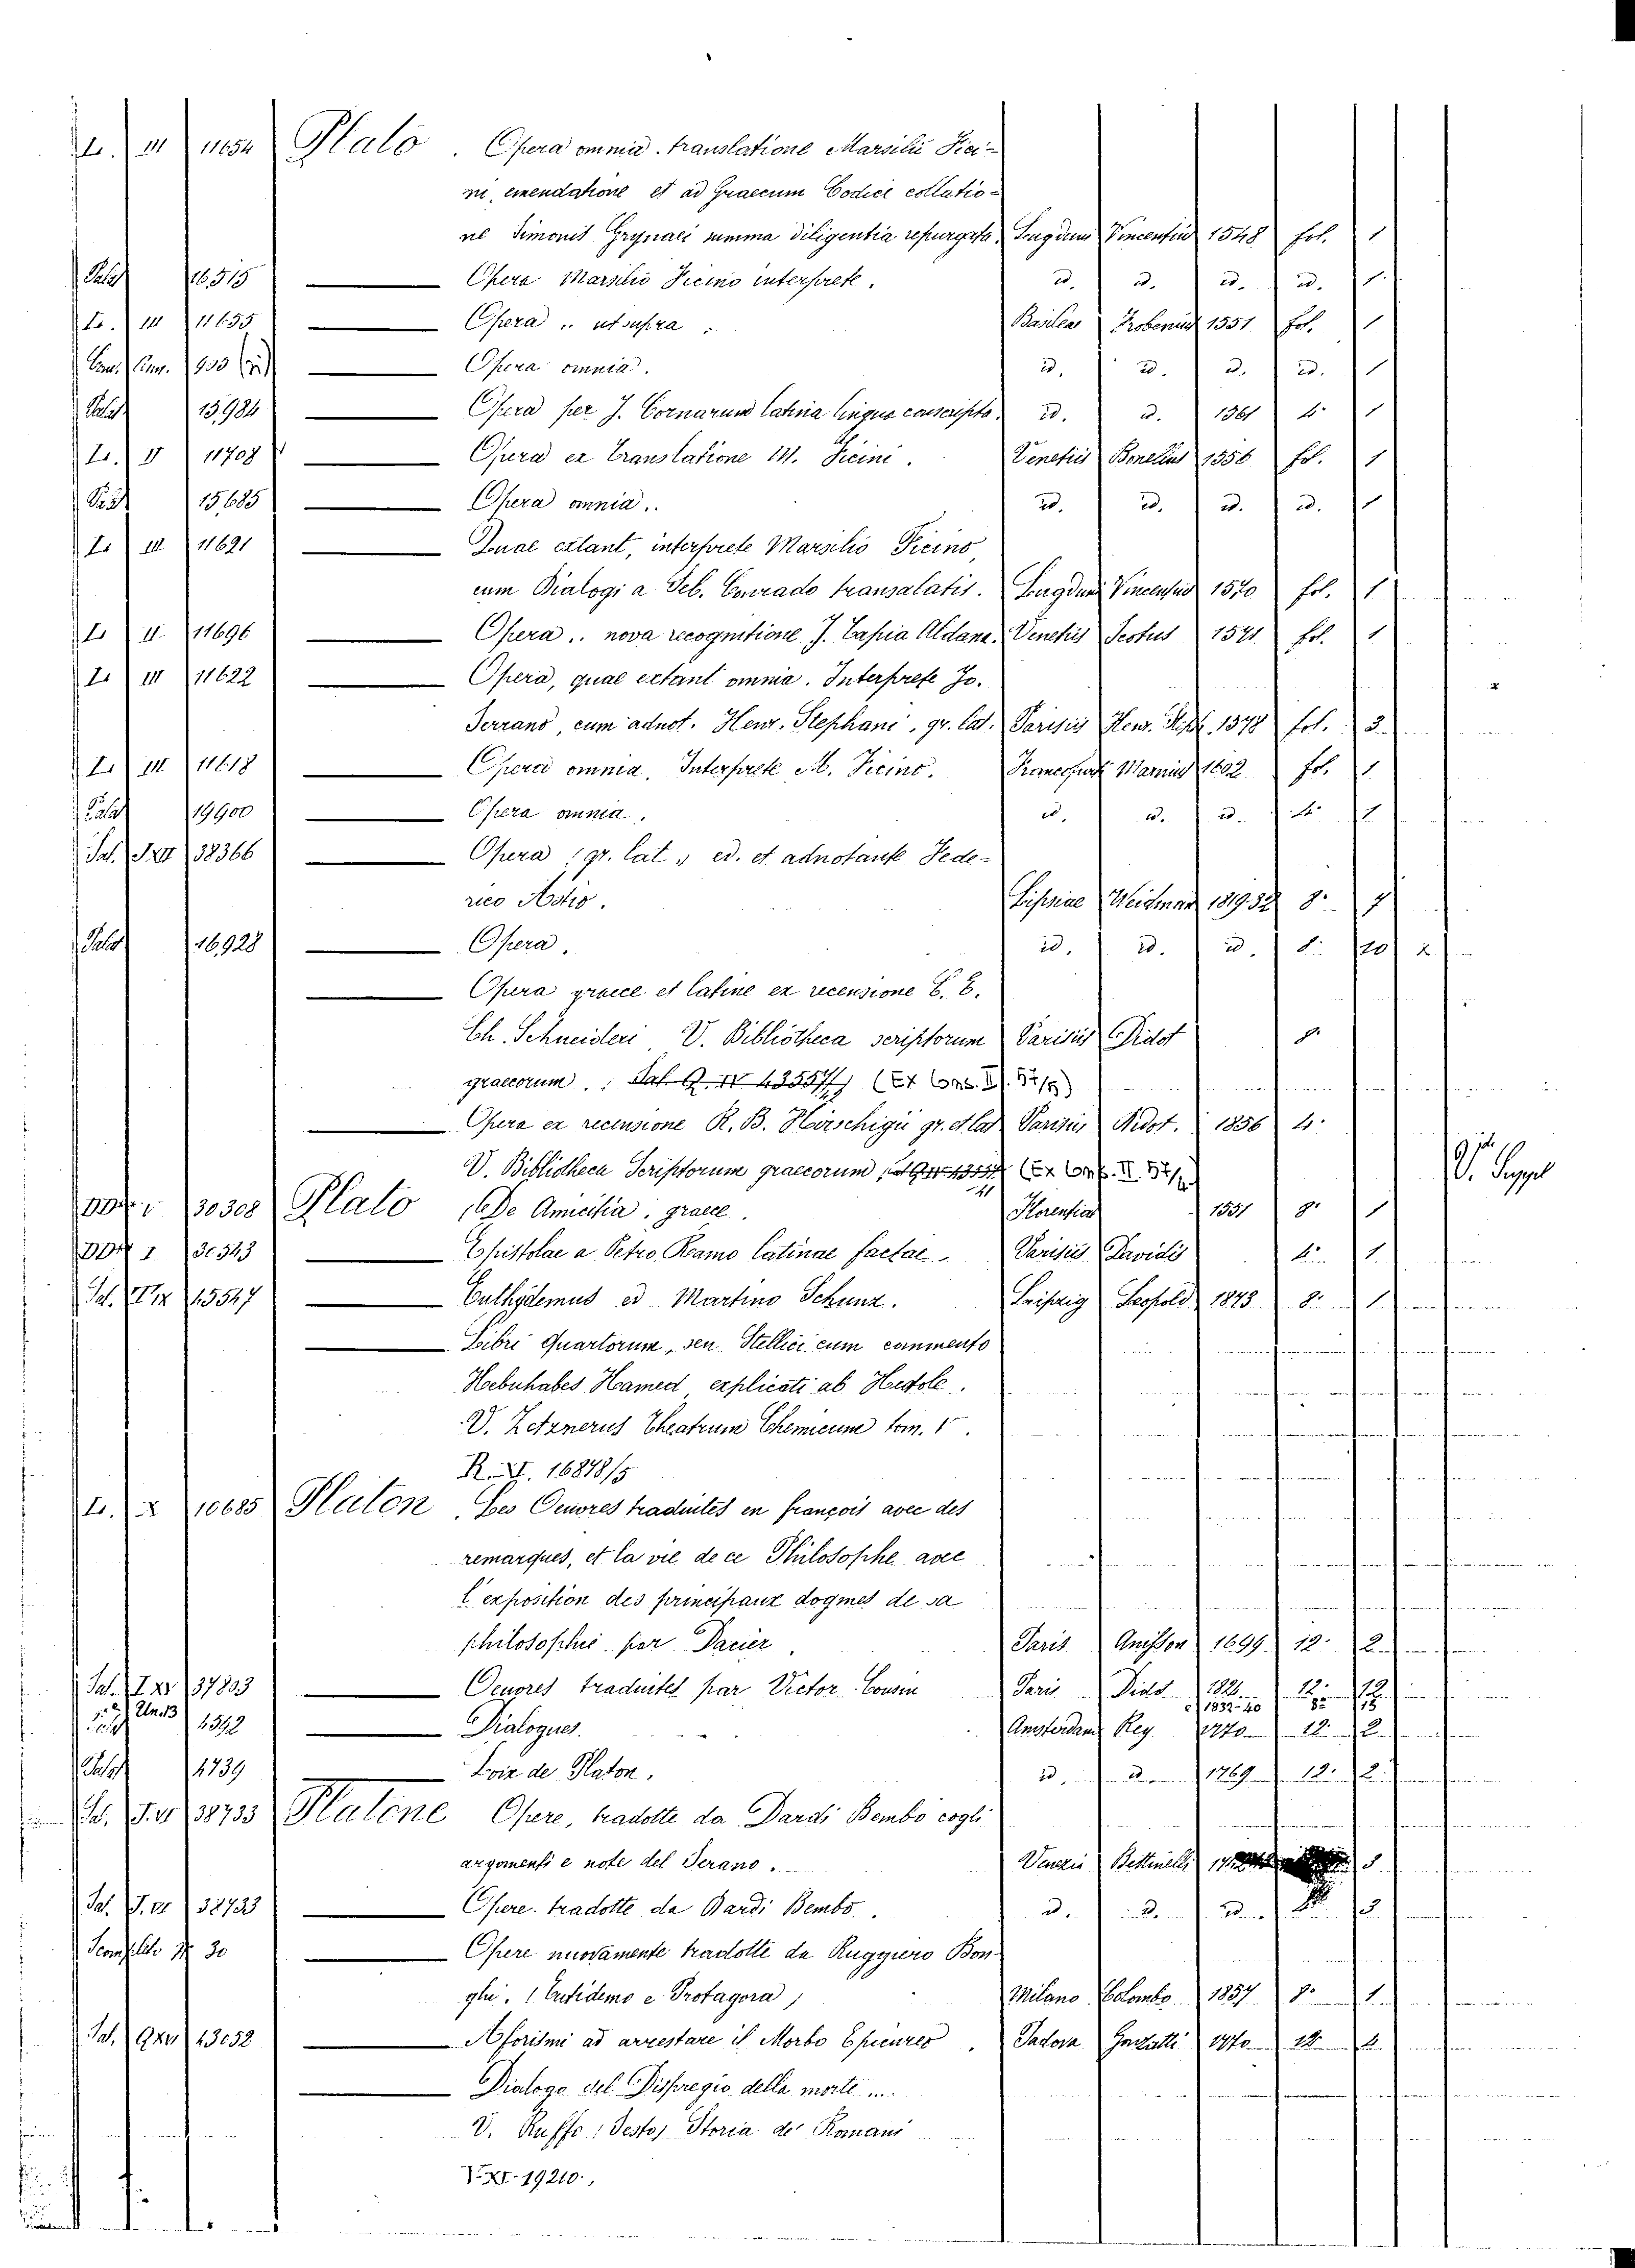 L. III 11654 Plato. Opera omnia. translatione Marsilii Fici-
ni, emendatione et ad Graecum Codice collatio-
ne Simonis Grynaei summa diligentia repurgata. Lugduni Vincentius 1548 fol. 1
Palat 16,515 Opera Marsilio Ficino interprete. id. id. id. id. 1
L. III 11655 Opera .. ut supra. Basileae Frobenius 1551 fol. 1
933 Opera omnia. id. id. id. id. 1
Palat 15,984 Opera per J. Cornarum latina lingua conscripta. id. id. 1561 4° 1
L. II 11708 Opera ex translatione M. Ficini. Venetiis Bonellus 1556 fol. 1
Palat 15,685 Opera omnia.. id. id. id. id. 1
L. III 11621 Quae extant, interprete Marsilio Ficino
cum Dialogi a Seb. Conrado transalatis. Lugduni Vincentius 1570 fol. 1
L. II. 11696 Opera .. nova recognitione J. Caspia Aldana. Venetiis Scotus 1571 fol. 1
L. III 11622 Opera, quae extant omnia. Interprete Jo.
Serrano, cum adnot. Henr. Stephani, gr. lat. Parisiis Henr. Steph. 1578 fol. 3
L. III. 11618 Opera omnia. Interprete M. Ficino. Francofurti Marnius 1602 fol. 1
Palat 19900 Opera omnia. id. id. id. 4° 1
Sal. 38366 Opera, gr. lat., ed. et adnotante Fede-
rico Astio. Lipsiae Weidman 1819 32 8° 7
Palat 16,928 Opera. id. id. id. 8° 20 2
Opera graece et latine ex recensione C. E.
Ch. Schneideri V. Bibliotheca scriptorum Parisiis Didot 8°
graecorum. Sal. Q. IV 43557/ (Ex Cons. II. 52/5)
Opera ex recensione R. B. Hirschigii gr. et lat. Parisiis Didot. 1856 4°
V. Bibliotheca Scriptorum graecorum (Ex Cons. II. 52/
V. Suppl
30308 Plato, De Amicitia, graece. Florentiae 1551 8° 1
30,343 Epistolae a Petro Ramo latinae factae. Parisiis Davidis 4° 1
Sal. 43547 Euthydemus ed Martino Schunz. Leipzig Leopold 1873 8° 1
Libri Quartorum, seu Stellici cum commento
Hebuhabes Hamed, explicati ab Hestole.
V. Zetznerus Theatrum Chemicum tom. V.
R. VI. 16878/5
L. X 10685 Platon, Les Oeuvres traduites en françois avec des
remarques, et la vie de ce Philosophe avec
l'exposition des principaux dogmes de sa
philosophie par Dacier. Paris Anisson 1699 12° 2
Sal. 37803 Oeuvres traduites par Victor Cousin Paris Didot 1826 12° 12
1832-40 8° 13
1392 Dialogues. Amsterdam Rey. 1770 12° 2
Palat 4739 Loix de Platon, id. id. 1769 12° 2
Sal. 38733 Platone Opere, tradotte da Dardi Bembo cogli
argomenti e note del Serano. Venezia Bettinelli 5
Sal. 38733 Opere tradotte da Dardi Bembo. id. id. id. 3
30 Opere nuovamente tradotte da Ruggiero Bon-
ghi. (Eutidemo e Protagora) Milano Colombo 1857 8° 1
Sal. 43052 Aforismi ad arrestare il Morbo Epicureo. Padova 12
Dialogo del Dispregio della morte ...
V. Ruffo, Testo, Storia de' Romani
V. XI. 19210.